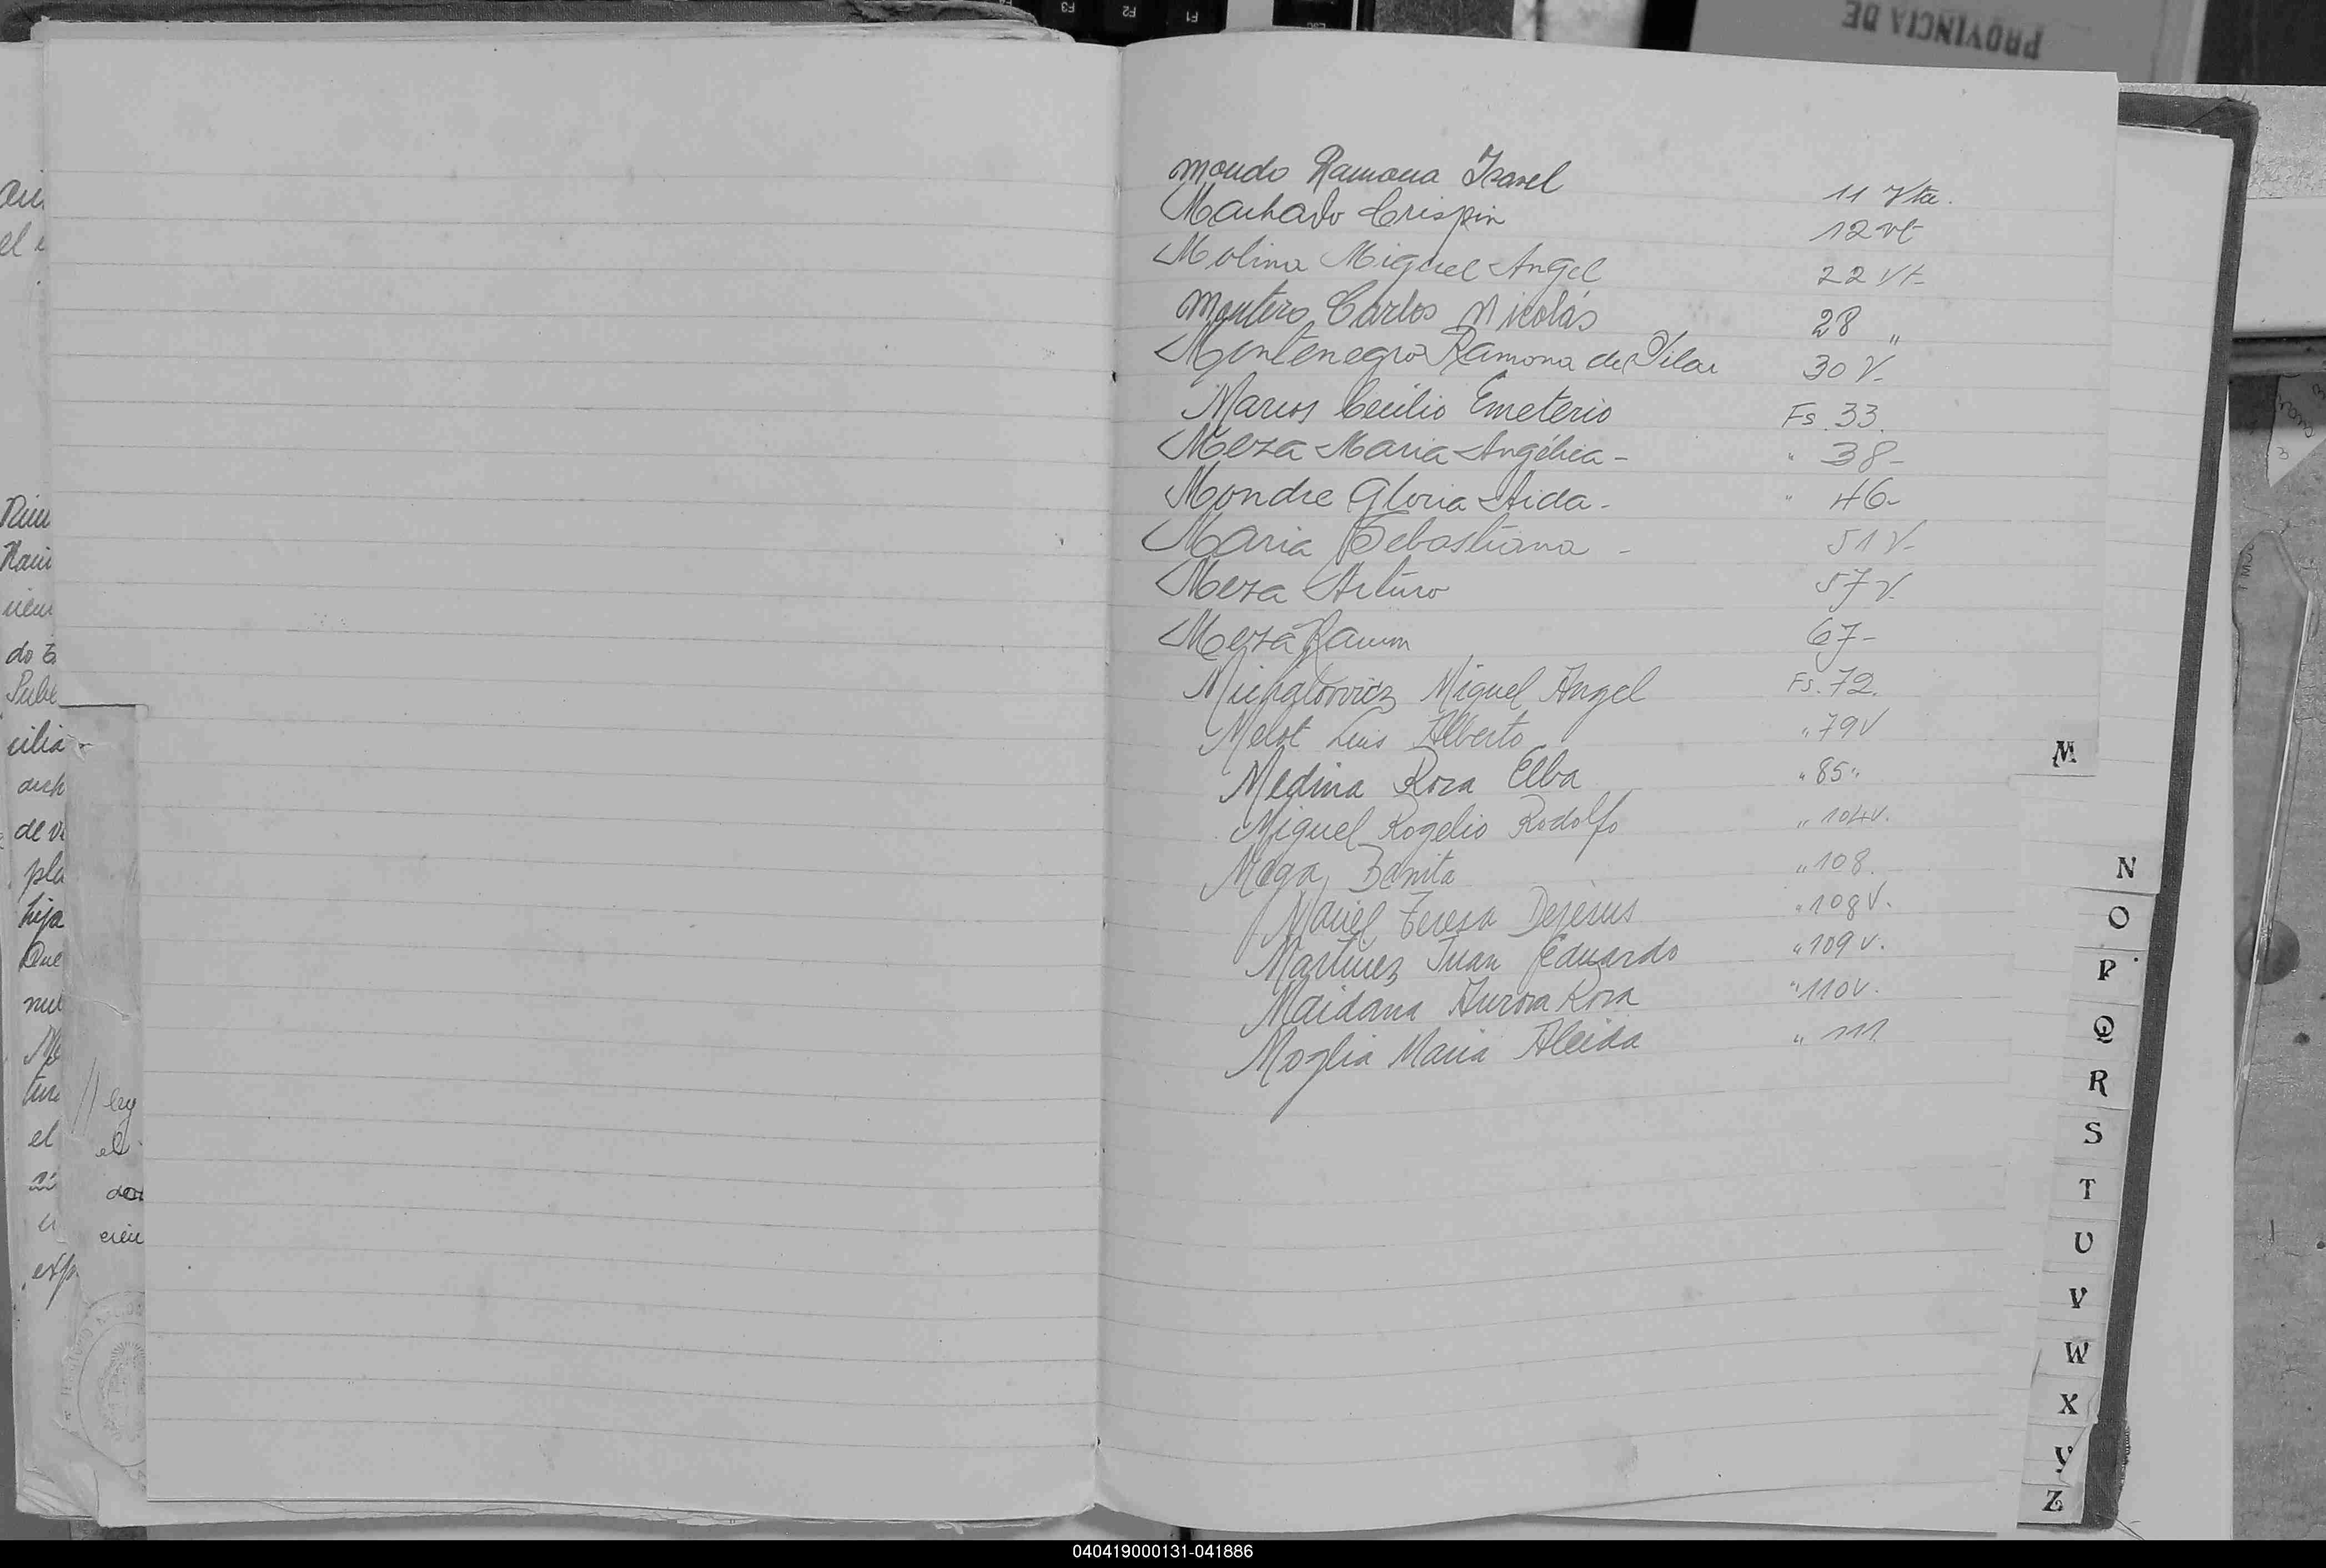 Mondo Ramona Isavel 11 Vta.
Machado Crispin 12 vt
Molina Miguel Angel 22 Vt-
Montero Carlos Nicolás 28 "
Montenegro Ramona del Pilar 30 V-
Marcos Cecilio Emeterio Fs. 33.
Meza Maria Angélica - " 38-
Mondre Gloria Aida - " 46-
Maria Sebastiana - 51 V-
Meza Arturo 57 V.
Meza Ramon 67-
Miguel Angel Fs. 72.
Melot Luis Alberto " 79 V
Medina Rosa Elba " 85 "
Miguel Rogelio Rodolfo " 104 V.
Benita " 108.
Mariel Teresa Dejesus " 108 V.
Martinez Juan Eduardo " 109 V.
Maidana Aurora Rosa " 110 V.
Moglia Maria Aleida " 111.
M
N
O
P
Q
R
S
T
U
V
W
X
Y
Z
PROVINCIA DE
F3 F2 F1
040419000131-041886